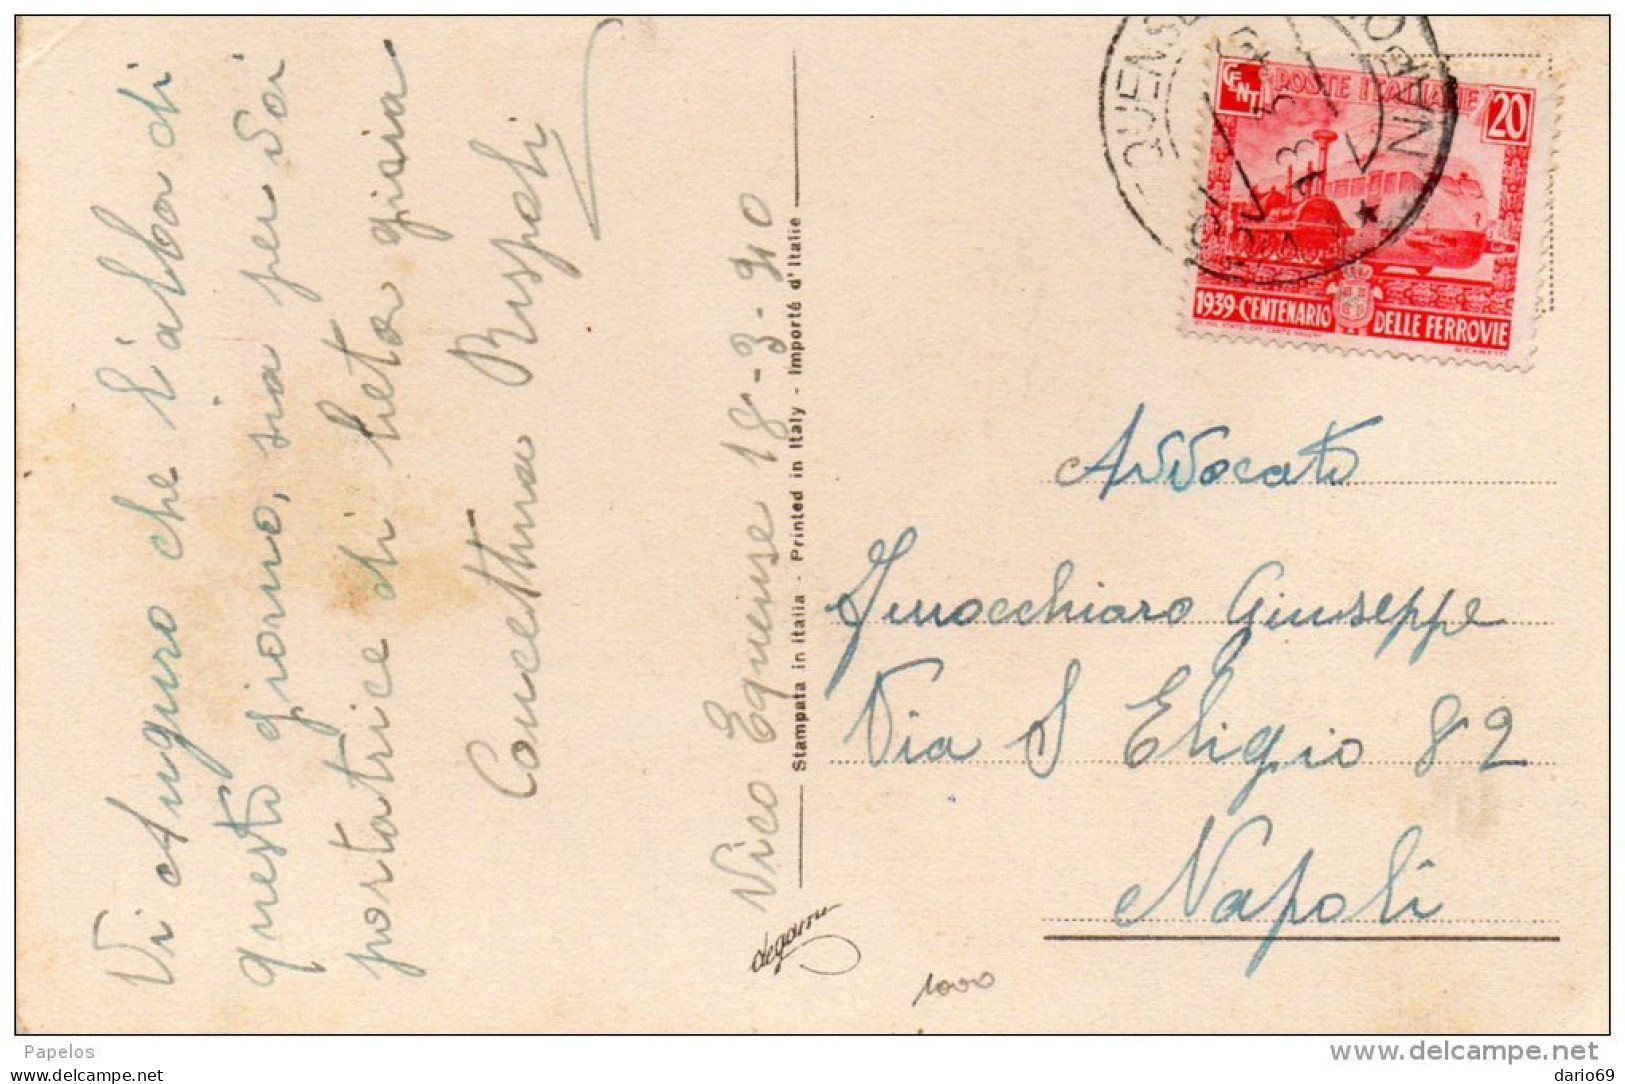 Vi Auguro che l'alba di
questo giorno, sia per voi
portatrice di lieta gioia
Concettina Ruspoli
Vico Equense 18-3-940
Stampata in Italia - Printed in Italy - Importé d'Italie
degami
CENT.
POSTE ITALIANE
20
1939-CENTENARIO
DELLE FERROVIE
IST. POL. STATO-OFF. CARTE VALORI
G. CANETTI
QUENSE
NAPO
Avvocato
Finocchiaro Giuseppe
Via S Eligio 82
Napoli
1000
Papelos
www.delcampe.net
delcampe.net
dario69